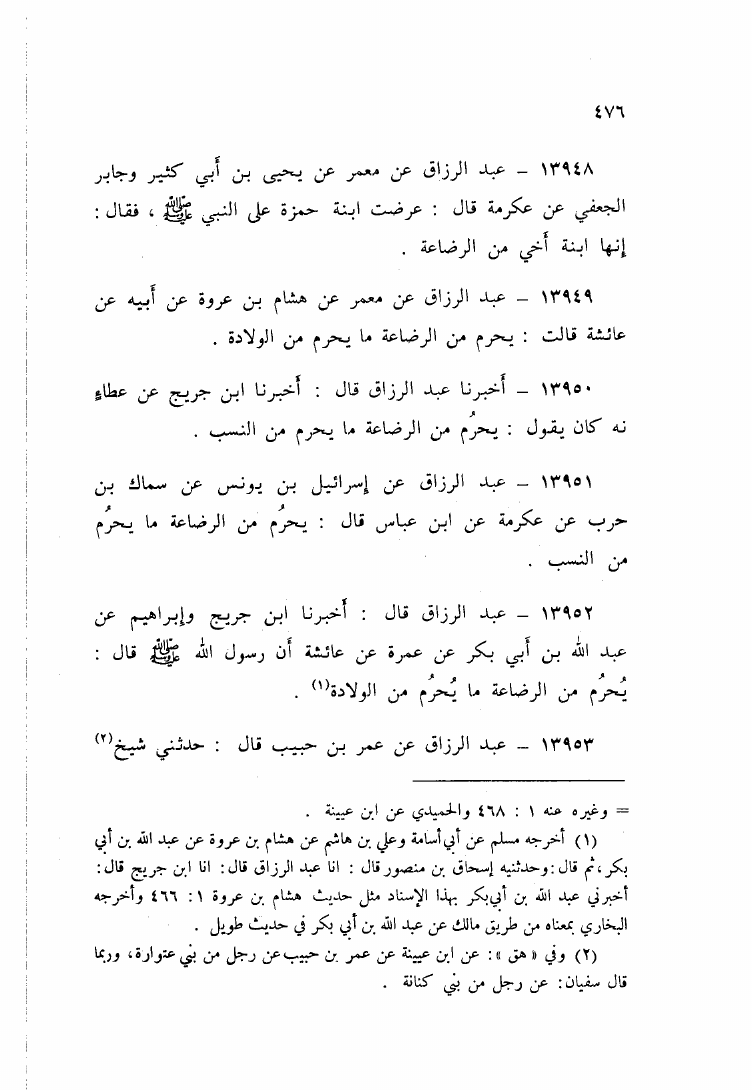 ٤٧٦
١٣٩٤٨ – عبد الرزاق عن معمر عن يحيى بن أَبي كثير وجابر
الجعفي عن عكرمة قال : عرضت ابنة حمزة على النبي ﷺ ، فقال :
إنها ابنة أَخي من الرضاعة .
١٣٩٤٩ – عبد الرزاق عن معمر عن هشام بن عروة عن أَبيه عن
عائشة قالت : يحرم من الرضاعة ما يحرم من الولادة .
١٣٩٥٠ – أَخبرنا عبد الرزاق قال : أَخبرنا ابن جريج عن عطاءٍ
نه كان يقول : يحرُم من الرضاعة ما يحرم من النسب .
١٣٩٥١ – عبد الرزاق عن إسرائيل بن يونس عن سماك بن
حرب عن عكرمة عن ابن عباس قال : يحرُم من الرضاعة ما يحرُم
من النسب .
١٣٩٥٢ – عبد الرزاق قال : أَخبرنا ابن جريج وإبراهيم عن
عبد الله بن أَبي بكر عن عمرة عن عائشة أن رسول الله ﷺ قال :
يُحرُم من الرضاعة ما يُحرُم من الولادة(١) .
١٣٩٥٣ – عبد الرزاق عن عمر بن حبيب قال : حدثني شيخ(٢)
= وغيره عنه ١ : ٤٦٨ والحميدي عن ابن عيينة .
(١) أخرجه مسلم عن أبي أسامة وعلي بن هاشم عن هشام بن عروة عن عبد الله بن أبي
بكر ، ثم قال : وحدثنيه إسحاق بن منصور قال : انا عبد الرزاق قال : انا ابن جريج قال :
أخبرني عبد الله بن أبي بكر بهذا الإسناد مثل حديث هشام بن عروة ١ : ٤٦٦ وأخرجه
البخاري بمعناه من طريق مالك عن عبد الله بن أبي بكر في حديث طويل .
(٢) وفي « هق » : عن ابن عيينة عن عمر بن حبيب عن رجل من بني عتوارة ، وربما
قال سفيان : عن رجل من بني كنانة .